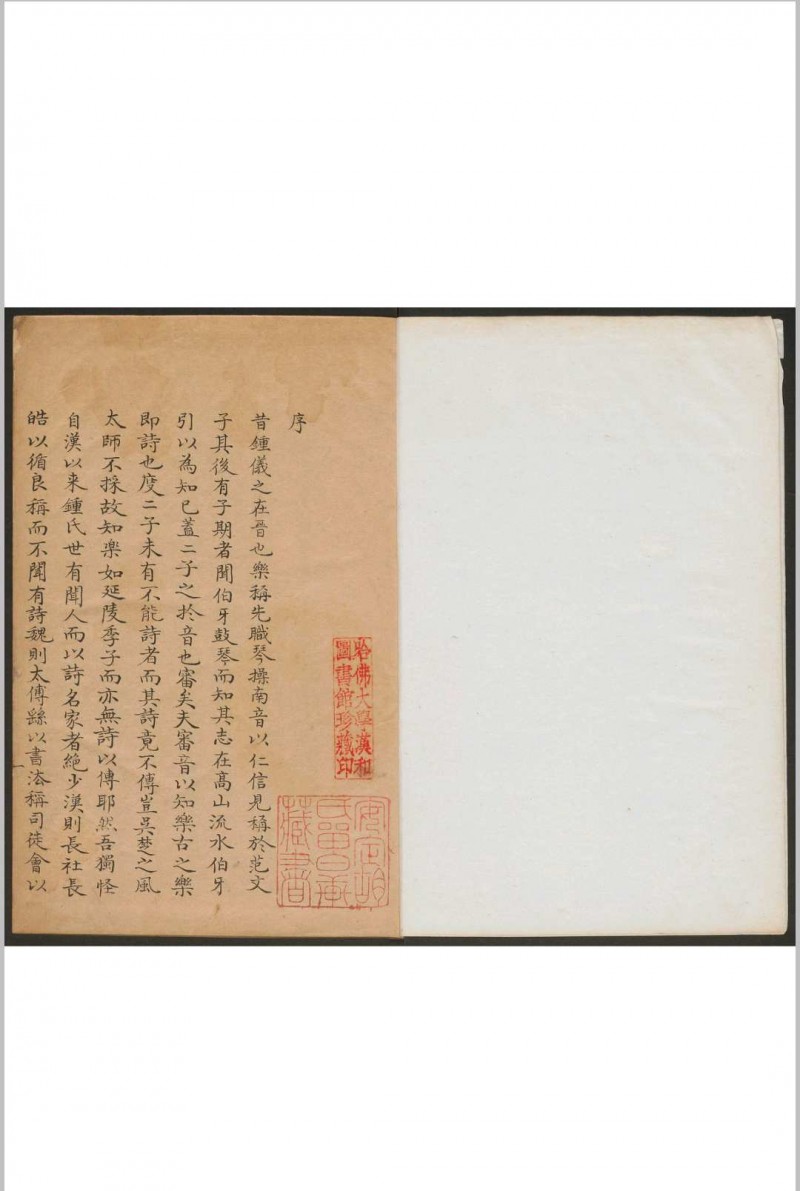 序
昔鍾儀之在晋也樂稱先職琴操南音以仁信見稱於范文
子其後有子期者聞伯牙鼓琴而知其志在髙山流水伯牙
引以為知已蓋二子之扵音也審矣夫審音以知樂古之樂
即詩也度二子未有不能詩者而其詩竟不傳豈吴楚之風
太師不採故知楽如延陵季子而亦無詩以傳耶然吾獨怪
自漢以来鍾氏世有聞人而以詩名家者絶少漢則長社長
皓以循良稱而不聞有詩魏則太傅繇以書法稱司徒會以
哈佛大學漢和
圖書館珍藏印
安定胡
藏書